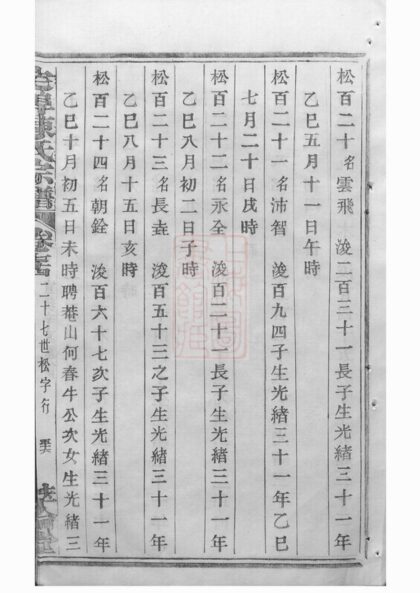 松百二十名雲飛 浚二百三十一長子生光緒三十一年
乙巳五月十一日午時
松百二十一名沛智 浚百九四子生光緒三十一年乙巳
七月二十日戌時
松百二十二名永全 浚百二十一長子生光緒三十一年
乙巳八月初二日子時
松百二十三名長壵 浚百五十三之子生光緒三十一年
乙巳八月十五日亥時
松百二十四名朝銓 浚百六十七次子生光緒三十一年
乙巳十月初五日未時聘菴山何春牛公次女生光緒三
氏宗譜 二十七世松字行